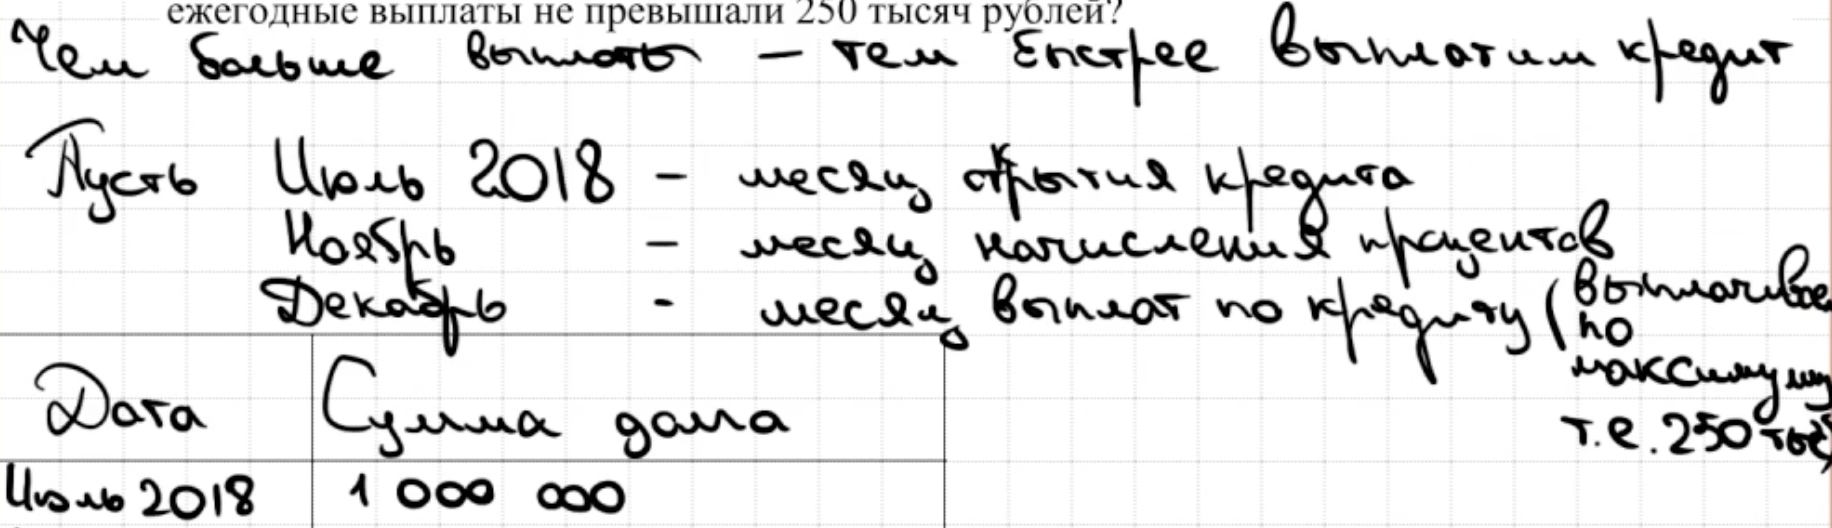 ежегодные выплаты не превышали 250 тысяч рублей?
Чем больше выплаты – тем быстрее выплатим кредит
Пусть Июль 2018 – месяц открытия кредита
Ноябрь – месяц начисления процентов
Декабрь - месяц выплат по кредиту (выплачивае
по
максимуму
т.е. 250 тыс)
Дата Сумма долга
Июль 2018 1 000 000